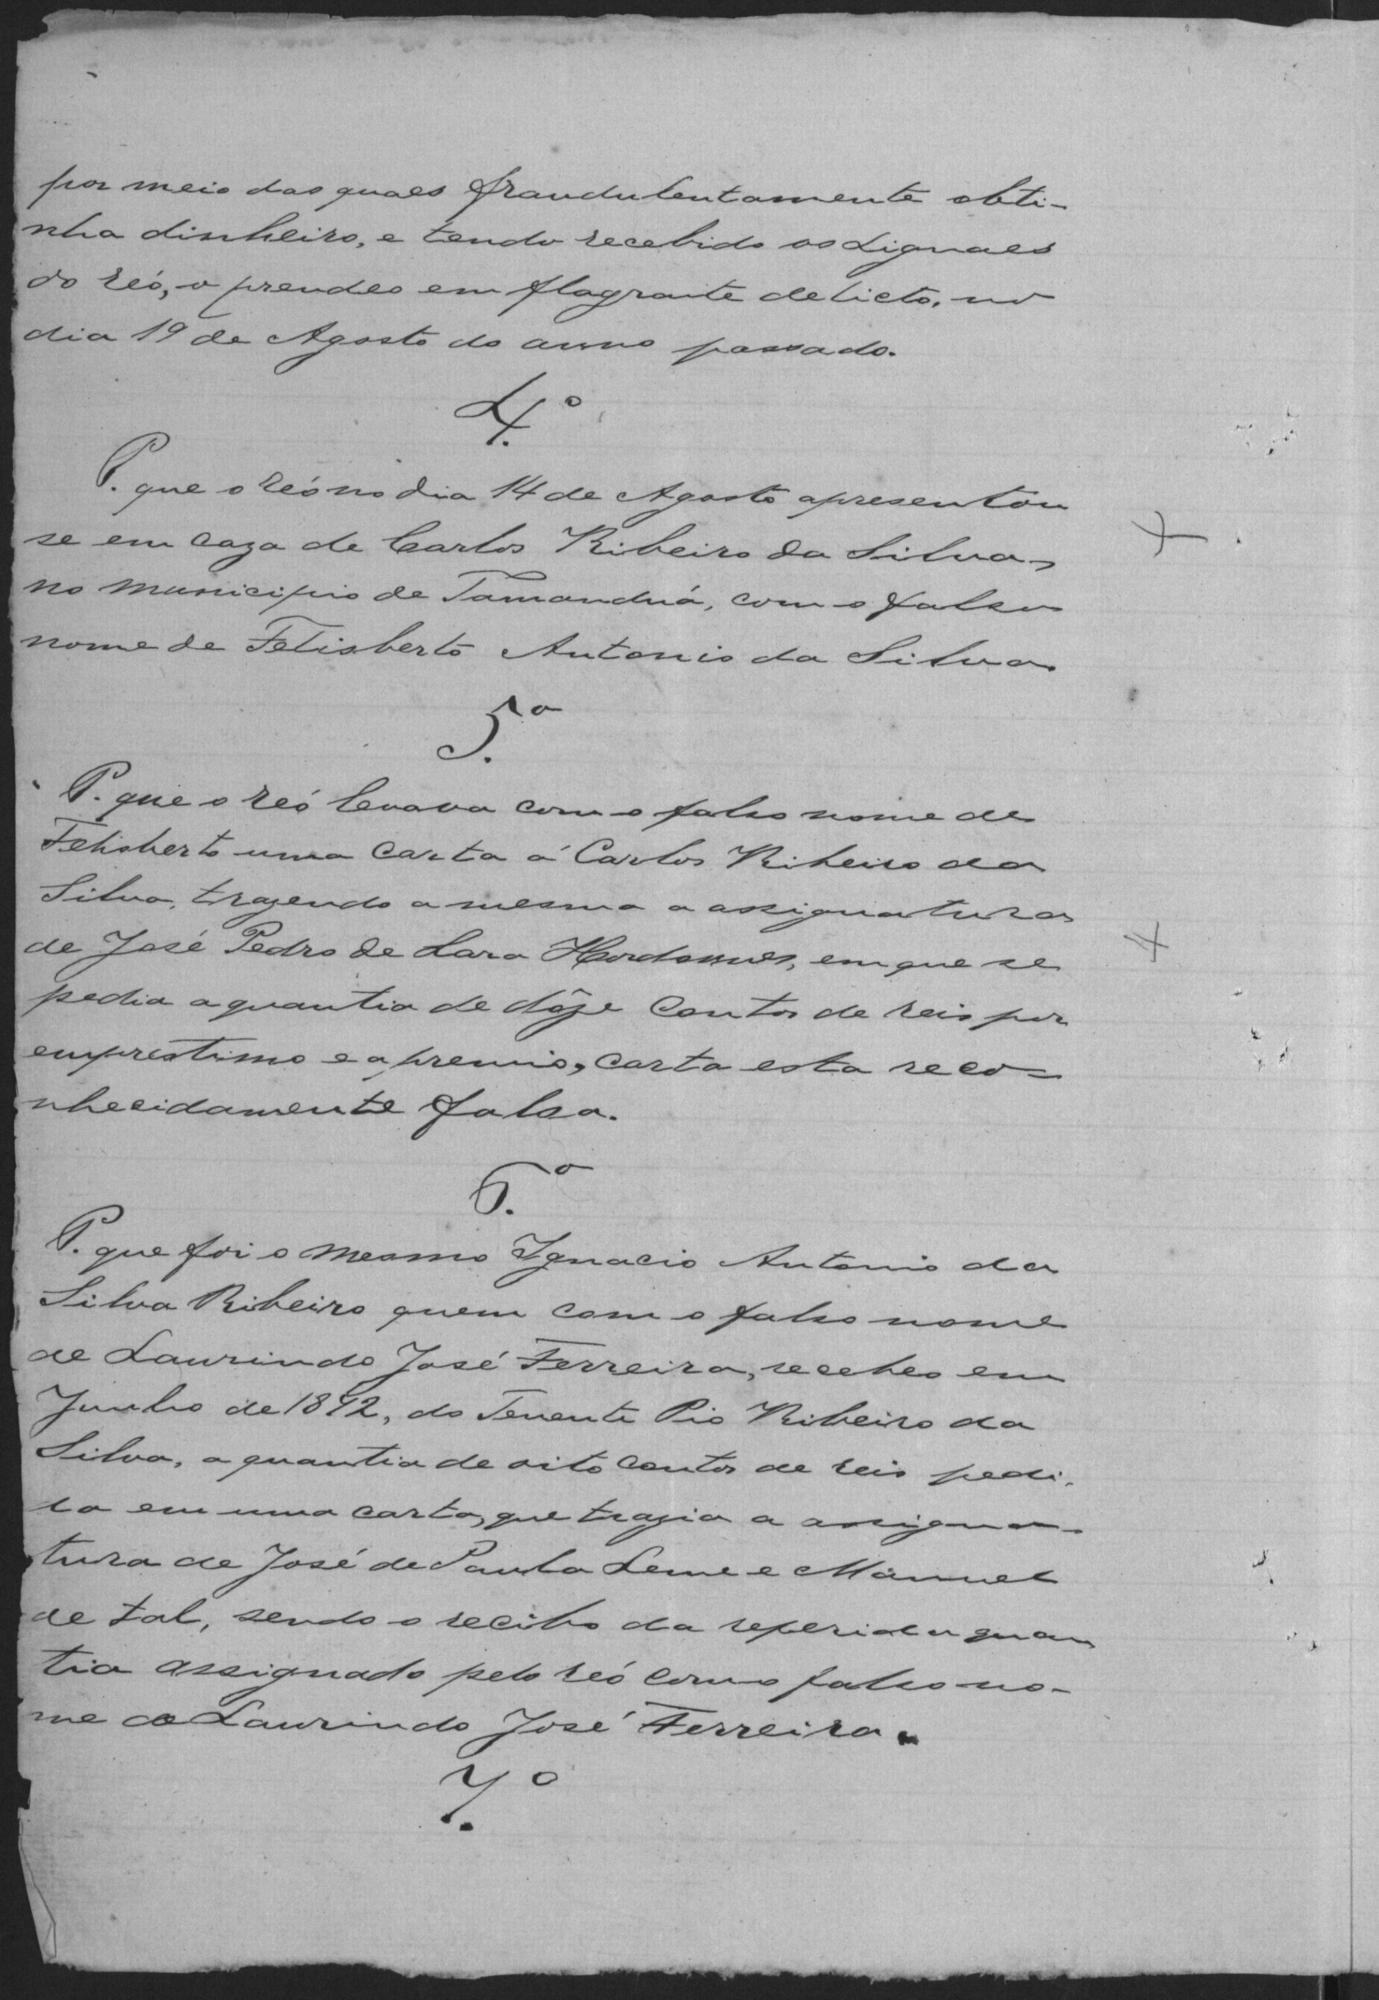 por meio das quaes fraudulentamente obti-
nha dinheiro, e tendo recebido os signaes
do réo, o prendeo em flagrante delicto, no
dia 19 de Agosto do anno passado.
4.º
P. que o réo no dia 14 de Agosto apresentou
se em caza de Carlos Ribeiro da Silva,
no municipio de Tamanduá, com o falso
nome de Felisberto Antonio da Silva
5.º
P. que o réo levava com o falso nome de
Felisberto uma carta á Carlos Ribeiro da
Silva, trazendo a mesma a assignatura
de José Pedro de Lara, em que se
pedia a quantia de dôze contos de reis por
emprestimo e a premio, carta esta reco-
nhecidamente falsa.
6.º
P. que foi o mesmo Ignacio Antonio da
Silva Ribeiro quem com o falso nome
de Laurindo José Ferreira, recebeo em
Junho de 1892, do Tenente Pio Ribeiro da
Silva, a quantia de oito contos de reis pedi-
da em uma carta, que trazia a assigna-
tura de José de Paula Leme e Manuel
de tal, sendo o recibo da referida quan
tia assignado pelo réo com o falso no-
me de Laurindo José Ferreira.
7.º